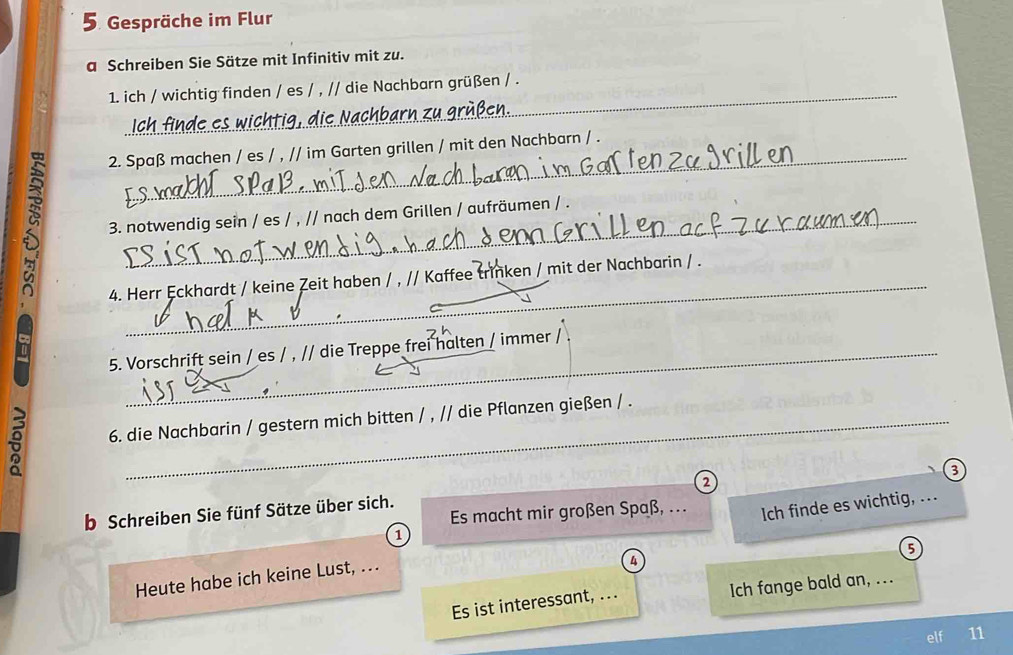 5 Gespräche im Flur
a Schreiben Sie Sätze mit Infinitiv mit zu.
1. ich / wichtig finden / es / , // die Nachbarn grüßen / .
Ich finde es wichtig, die Nachbarn zu grüßen.
2. Spaß machen / es / , // im Garten grillen / mit den Nachbarn / .
Es macht Spaß, mit den Nachbaran im Garten zu grillen
3. notwendig sein / es / , // nach dem Grillen / aufräumen / .
Es ist notwendig, nach dem Grillen acf zu raumen
4. Herr Eckhardt / keine Zeit haben / , // Kaffee trinken / mit der Nachbarin / .
hat
5. Vorschrift sein / es / , // die Treppe frei halten / immer / .
ist
6. die Nachbarin / gestern mich bitten / , // die Pflanzen gießen / .
b Schreiben Sie fünf Sätze über sich.
1
Heute habe ich keine Lust, ...
2
Es macht mir großen Spaß, ...
3
Ich finde es wichtig, ...
4
Es ist interessant, ...
5
Ich fange bald an, ...
elf 11
BLACK'PEPS FSC B=1 Maped